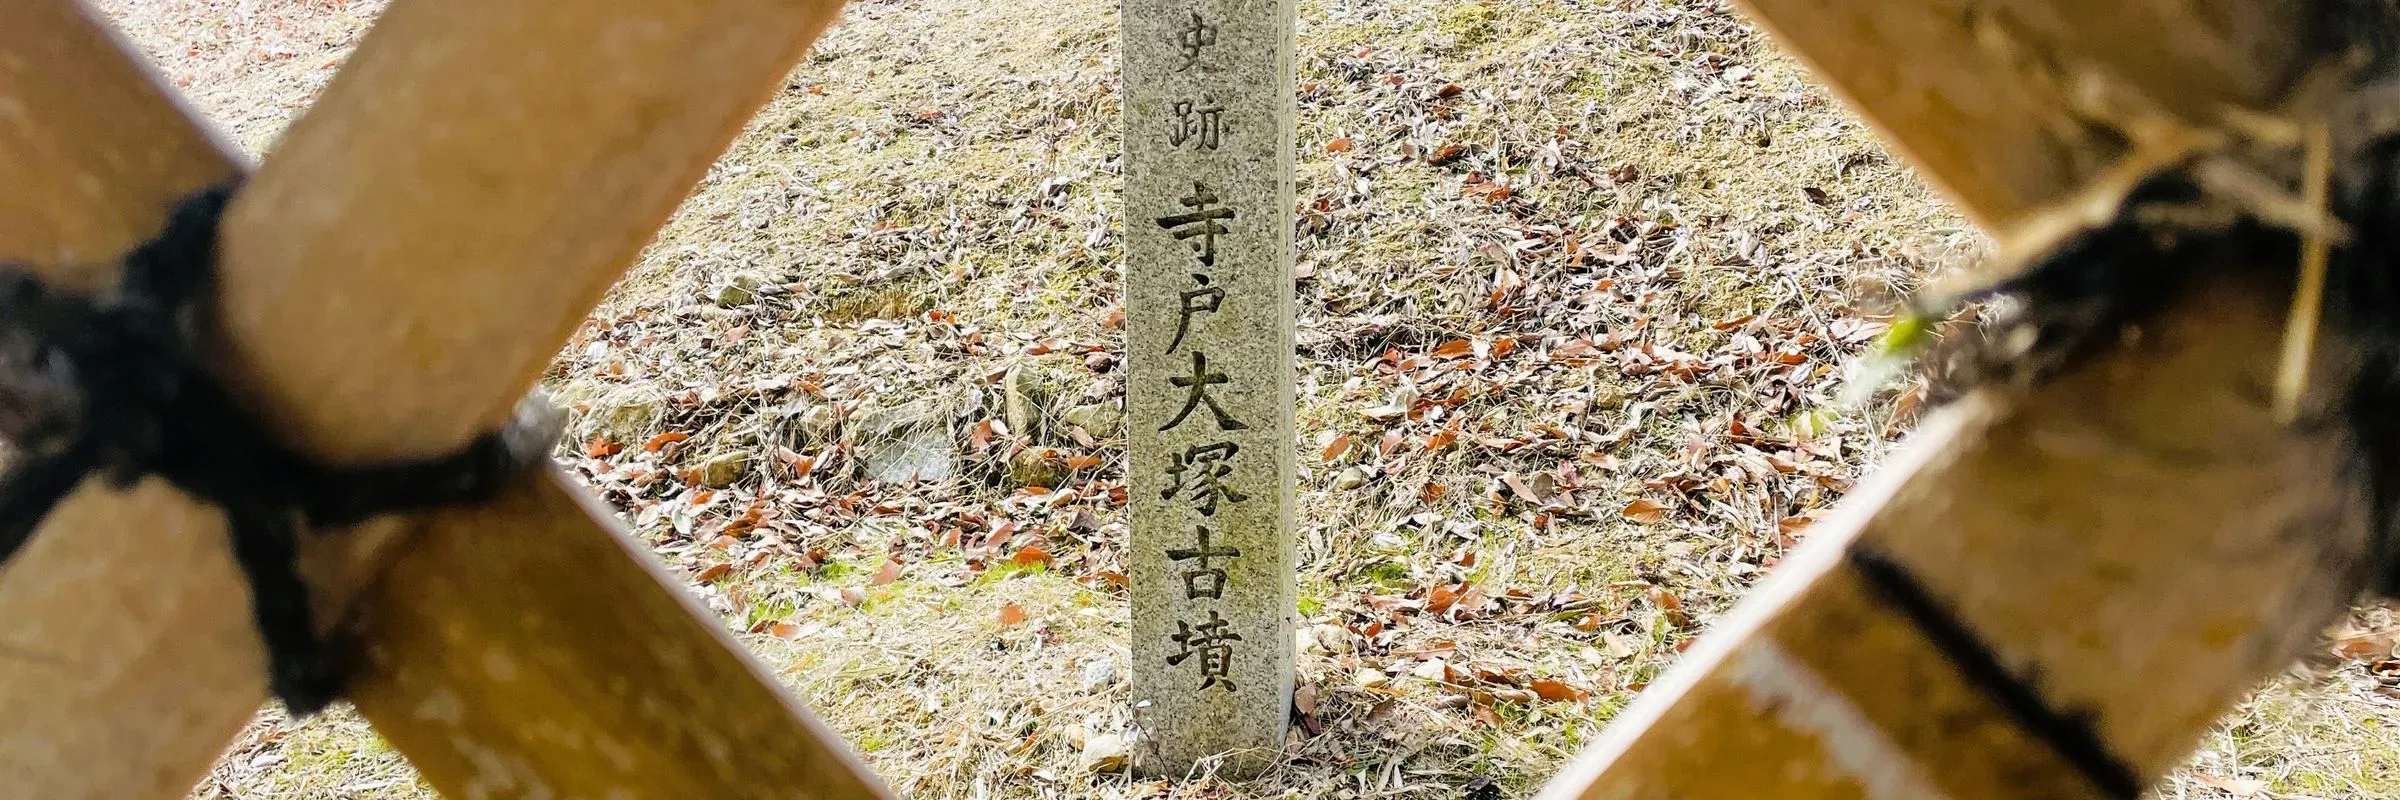 史跡 寺戸大塚古墳